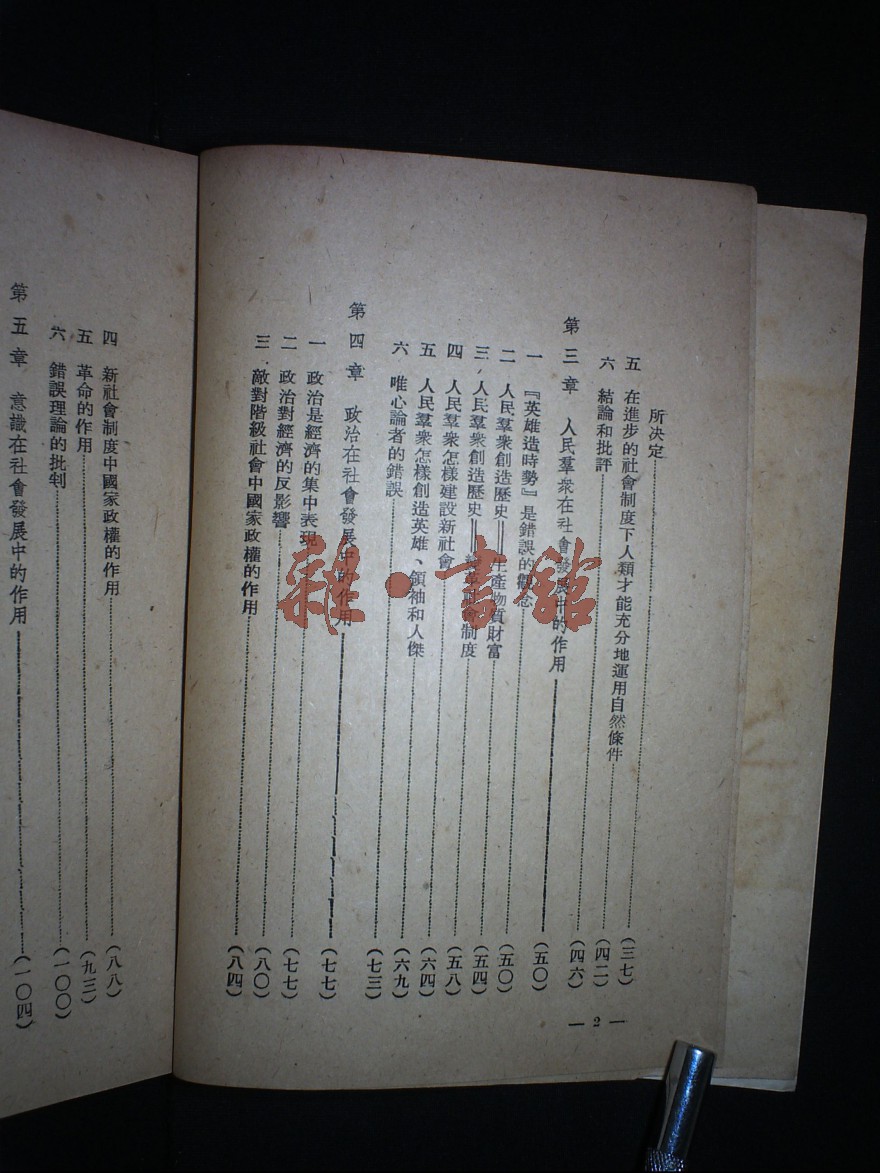 所決定……(三七)
五 在進步的社會制度下人類才能充分地運用自然條件……(四二)
六 結論和批評……(四六)
第三章 人民羣衆在社會發展中的作用……(五〇)
一 『英雄造時勢』是錯誤的觀念……(五〇)
二 人民羣衆創造歷史——生產物質財富……(五四)
三 人民羣衆創造歷史——變革社會制度……(五八)
四 人民羣衆怎樣建設新社會……(六四)
五 人民羣衆怎樣創造英雄、領袖和人傑……(六九)
六 唯心論者的錯誤……(七三)
第四章 政治在社會發展中的作用……(七七)
一 政治是經濟的集中表現……(七七)
二 政治對經濟的反影響……(八〇)
三 敵對階級社會中國家政權的作用……(八四)
— 2 —
四 新社會制度中國家政權的作用……(八八)
五 革命的作用……(九三)
六 錯誤理論的批判……(一〇〇)
第五章 意識在社會發展中的作用……(一〇四)
雜·書館